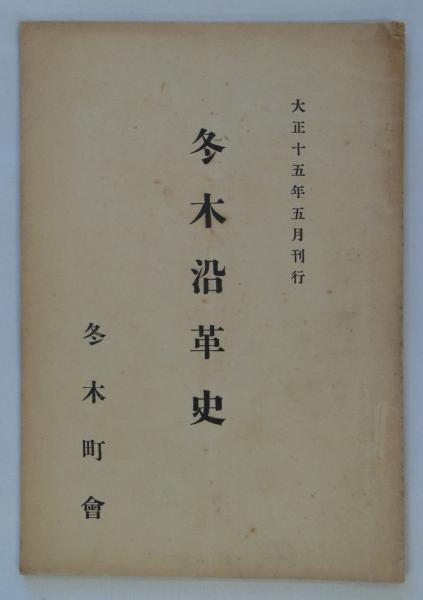 大正十五年五月刊行
冬木沿革史
冬木町會